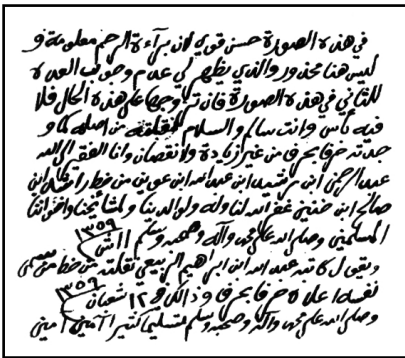 في هذه الصورة حسن قوي لان براءة الرحم معلومة و
ليس هنا محذور والذي يظهر لي عدم وجوب العدة
للثاني في هذه الصورة فان تزوجها على هذه الحال فلا
فيه بأس وانت سالم والسلام نقلته من اصله كما و
جدته حرفا بحرف من غير زيادة ولا نقصان وانا الفقير الى الله
عبد الرحمن ابن عبد الله ابن من خط راشد ابن
صالح ابن خنين غفر الله لنا وله ولوالدينا ولمشايخنا واخواننا
المسلمين وصلى الله على محمد وآله وصحبه وسلم ١٣٥٩
ويقول كاتبه عبد الله ابن ابراهيم الربيعي نقلته من خط من سمى
نفسه اعلاه حرفا بحرف وذلك في ١٢ شعبان ١٣٥٩
وصلى الله على محمد وآله وصحبه وسلم تسليما كثيرا آمين آمين